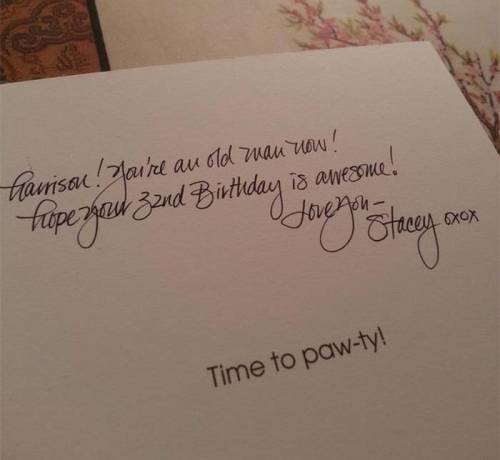 Harrison! You're an old man now!
Hope your 32nd Birthday is awesome!
Love you -
Stacey oxox
Time to paw-ty!